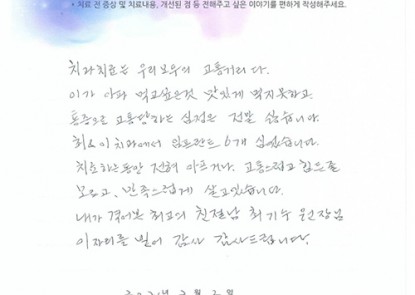 * 치료 전 증상 및 치료내용, 개선된 점 등 전해주고 싶은 이야기를 편하게 작성해주세요.
치과치료는 우리모두의 고통거리다.
이가 아파 먹고싶은것 맛있게 먹지못하고.
통증으로 고통당하는 심정은 정말 싫습니다.
최&이 치과에서 임프란트 6개 심었습니다.
치료하는동안 전혀 아프거나. 고통스럽고 힘든줄
모르고, 만족스럽게 살고있습니다.
내가 겪어본 최고의 친절남 최기수 원장님
이자리를 빌어 감사 감사드립니다.